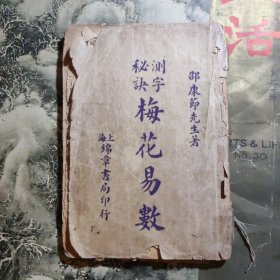 邵康節先生著
測字
秘訣
梅花易數
上海
錦章書局印行
活
RTS & LIF
NO. 30